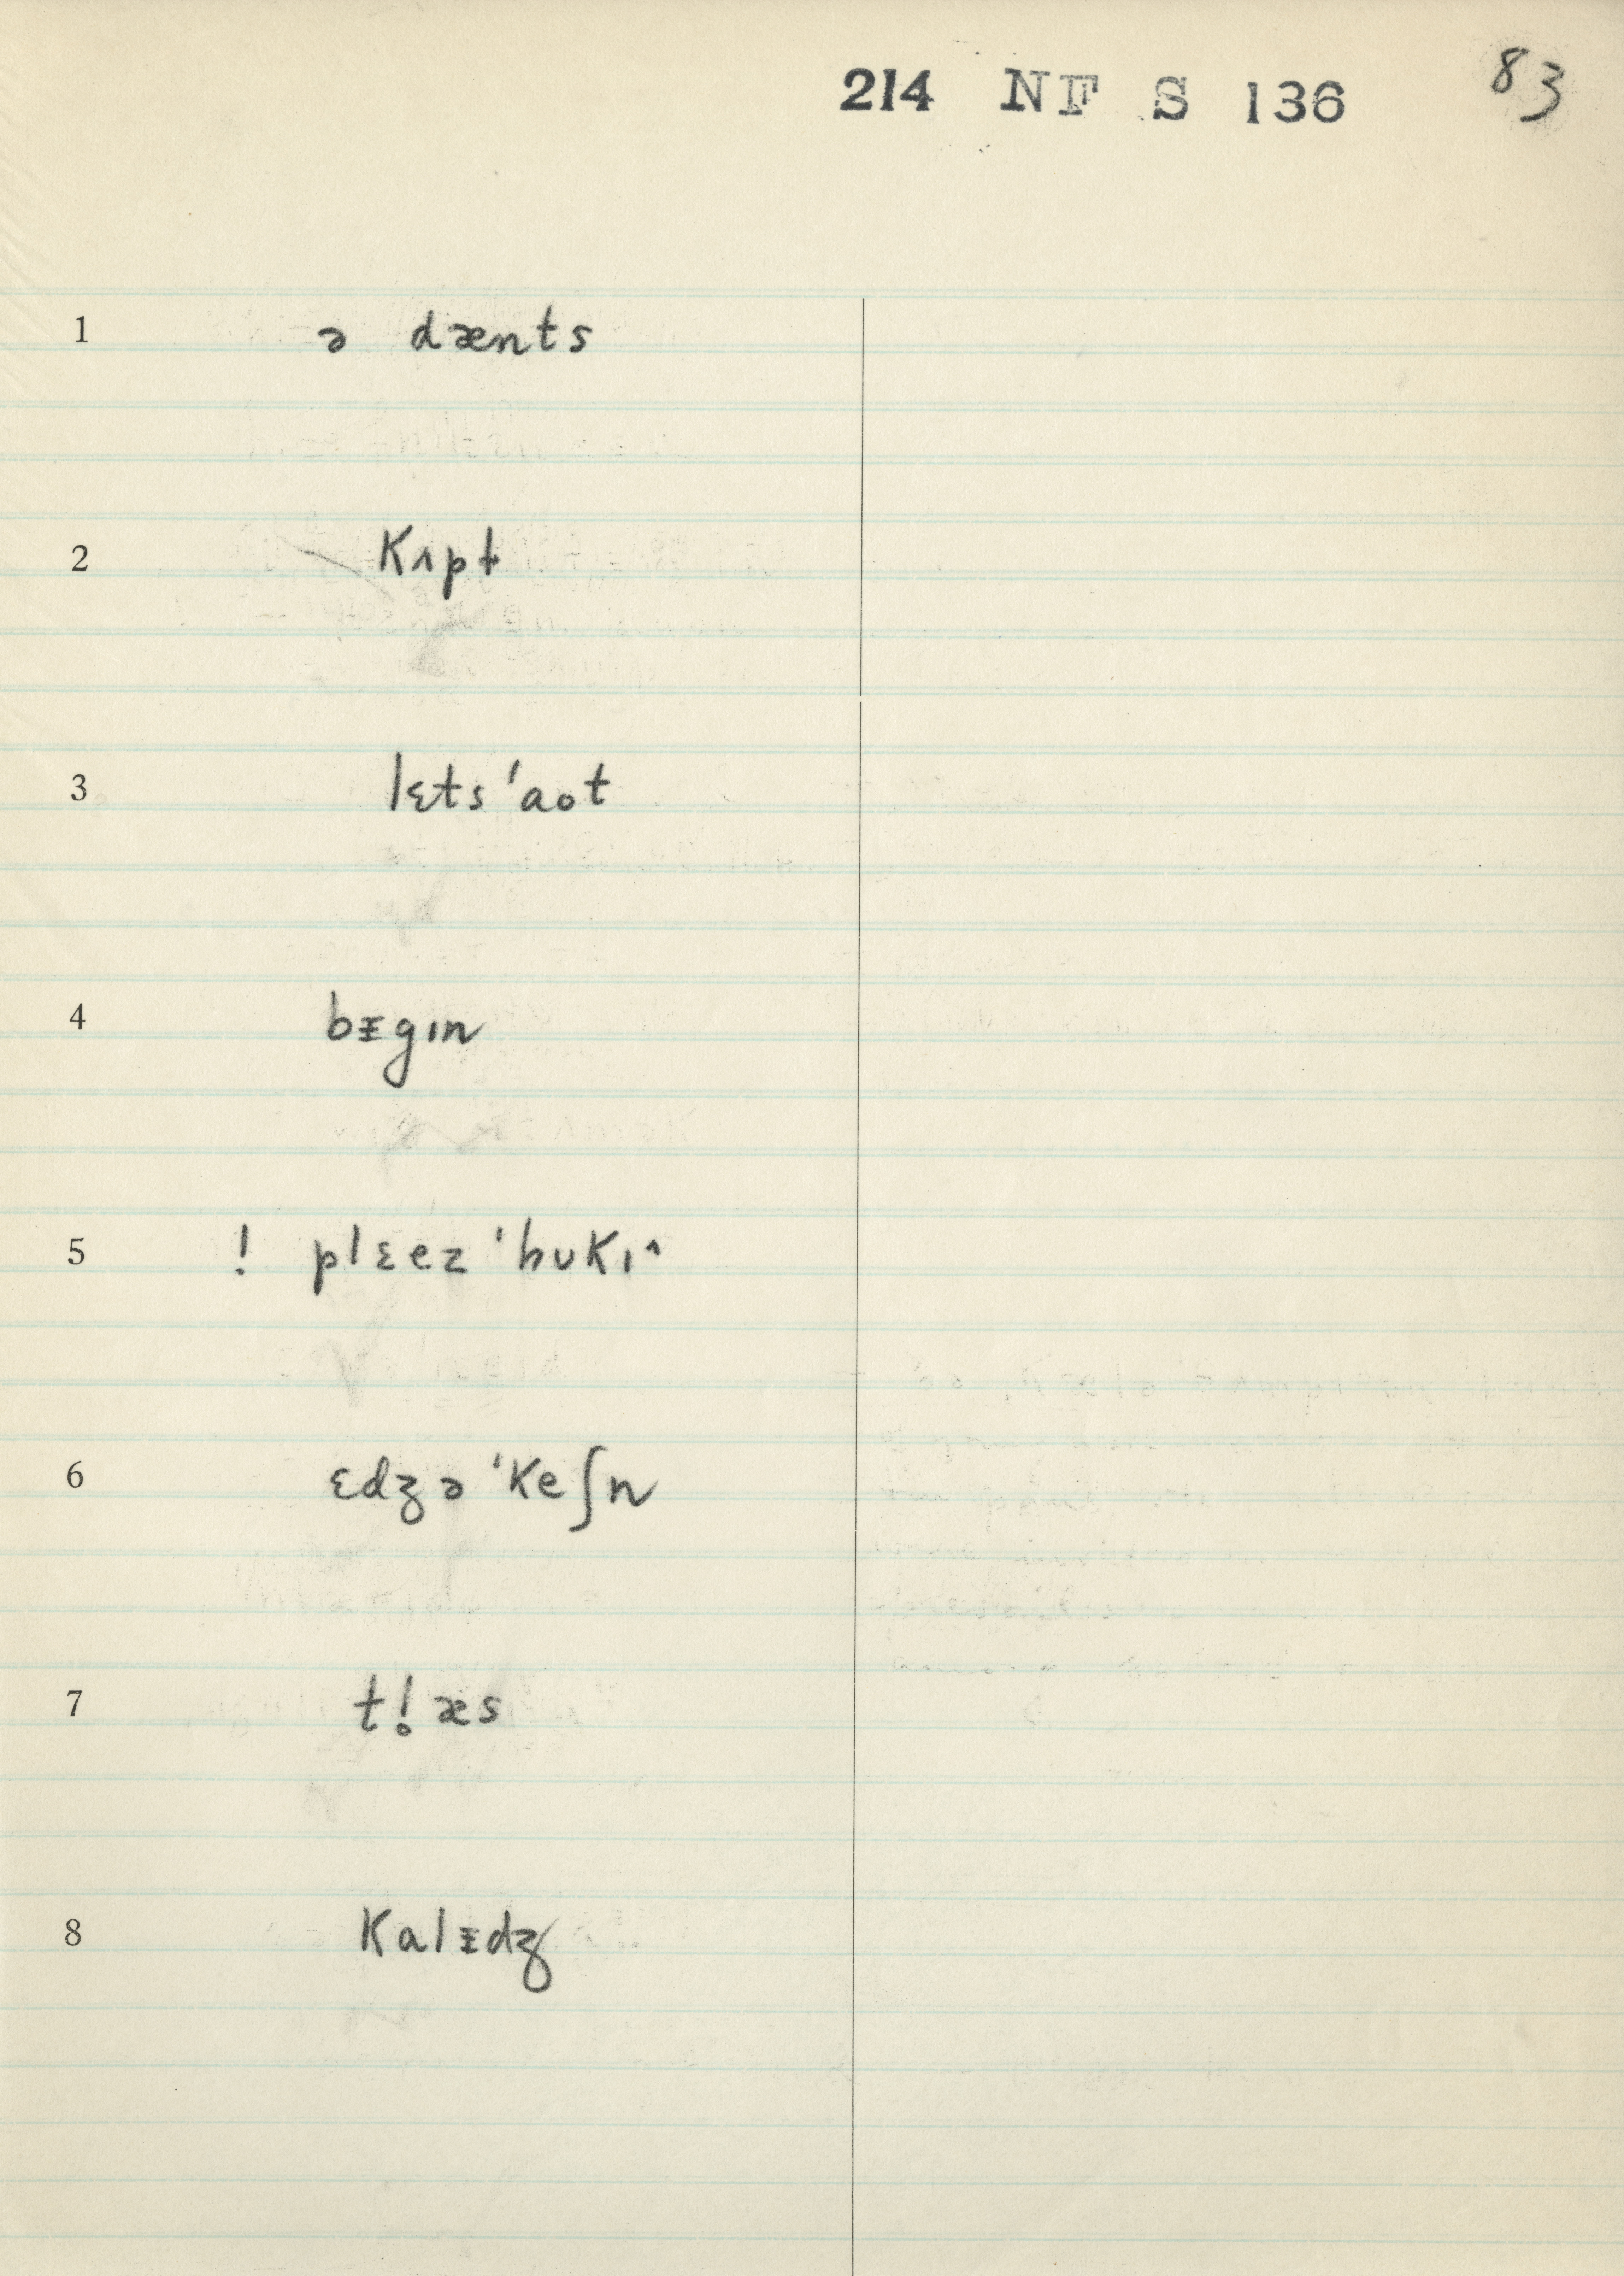 214 NF S 136 83
1 ə dænts
2 kʌpt
3 lɛts ˈaot
4 bᵻgɪn
5 ! plɛez ˈhʊkɪ^
6 ɛdʒə ˈkeʃn
7 tl̥!æs
8 kalᵻdʒ